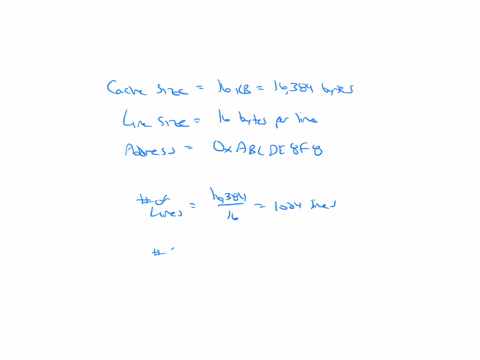 Cache Size = 16 KB = 16,384 bytes
Line Size = 16 bytes per line
Address = 0xABCDE8F8
# of Lines = 16,384 / 16 = 1024 lines
#